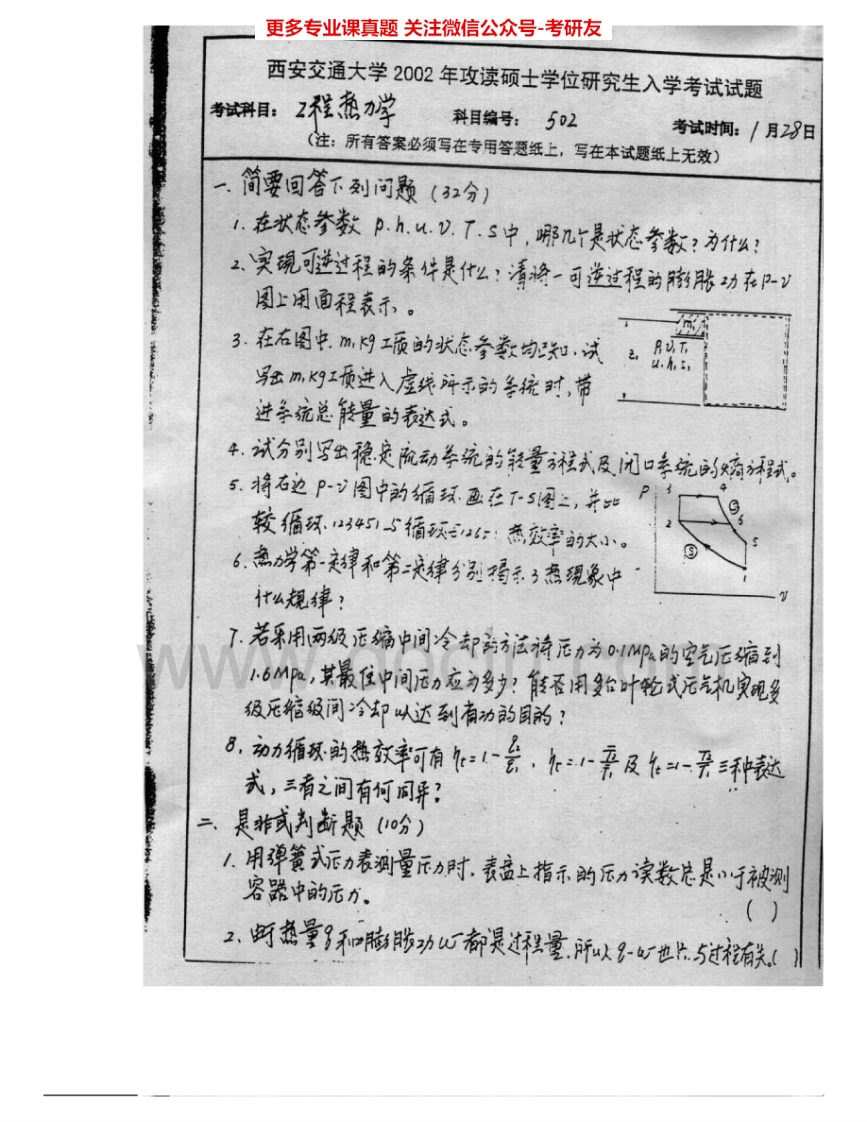 更多专业课真题 关注微信公众号-考研友
西安交通大学 2002 年攻读硕士学位研究生入学考试试题
考试科目: 工程热力学 科目编号: 502 考试时间: 1 月28日
(注:所有答案必须写在专用答题纸上,写在本试题纸上无效)
一. 简要回答下列问题 (32分)
1. 在状态参数 p. h. u. v. T. s 中, 哪几个是状态参数? 为什么?
2. 实现可逆过程的条件是什么? 请将一可逆过程的膨胀功在 p-v
图上用面积表示。
3. 在右图中. m, kg 工质的状态参数均已知. 试
写出 m, kg 工质进入虚线所示的系统时, 带
进系统总能量的表达式。
m,
P, v, T,
u, h, s,
4. 试分别写出稳定流动系统的能量方程式及闭口系统的熵方程式。
5. 将右边 p-v 图中的循环画在 T-s 图上, 并比
较循环 123451 与循环 的大小。
P 3 4
2 6
5
1
v
6. 热力学第一定律和第二定律分别揭示了热现象中
什么规律?
7. 若采用两级压缩中间冷却的方法将压力为 0.1MPa 的空气压缩到
1.6MPa, 其最佳中间压力应为多少? 能否用多台叶轮式压气机实现多
级压缩级间冷却以达到省功的目的?
8. 动力循环的热效率可有 三种表达
式, 三者之间有何同异?
二、是非或判断题 (10分)
1. 用弹簧式压力表测量压力时. 表盘上指示的压力读数总是小于被测
容器中的压力。 ( )
2. 由于热量 q 和膨胀功 w 都是过程量, 所以 q-w 也只与过程有关。( )